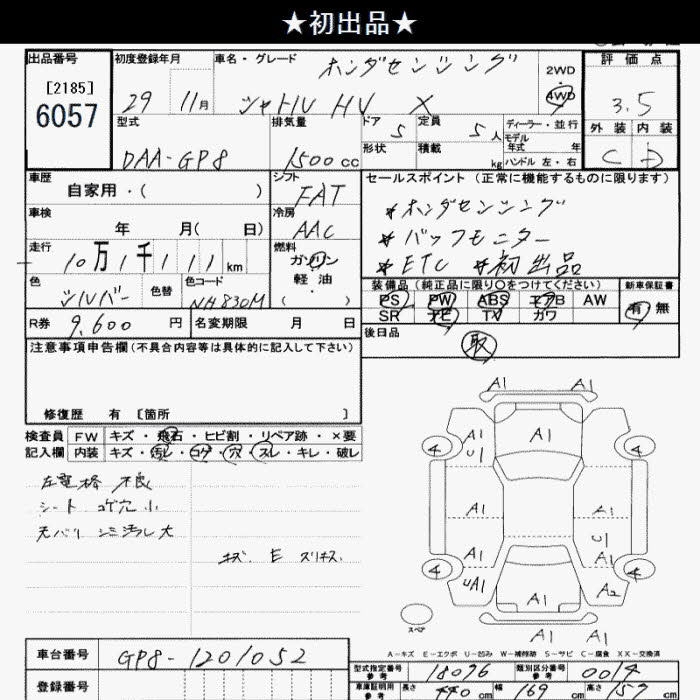 ★初出品★
出品番号
[2185]
6057
初度登録年月
29 11月
車名・グレード
ホンダセンシング
シャトル HV X
2WD
4WD
評価点
3.5
外装 内装
C D
型式
DAA-GP8
排気量
1500cc
ドア 5
形状
定員 5人
積載 kg
ディーラー・並行
モデル年式 年
ハンドル 左・右
車歴
自家用・( )
シフト
FAT
セールスポイント (正常に機能するものに限ります)
*ホンダセンシング
*バックモニター
*ETC *初出品
車検
年 月( 日)
冷房
AAC
走行
10万1千111km
燃料
ガソリン
軽油
( ・ )
色
シルバー
色替
色コード
NH830M
装備品 (純正品に限り○をつけてください)
PS PW ABS エアB AW
SR ナビ TV カワ
新車保証書
有 無
R券 9,600円
名変期限 月 日
後日品
取
注意事項申告欄(不具合内容等は具体的に記入して下さい)
修復歴 有 [箇所 ]
検査員記入欄
FW キズ・飛石・ヒビ割・リペア跡・×要
内装 キズ・汚レ・コゲ・穴・スレ・キレ・破レ
左電格 不良
シート コゲ穴 小
天バリ シミ汚レ大
キズ. E スリキズ.
A1 A1
A1 A1 A1
U1
4 4
A1 A1
U1
A1 A1
4 4
UA1 A1 A2
A1
スペア
A-キズ E-エクボ U-凹み W-補修跡 S-サビ C-腐食 XX-交換済
車台番号
GP8-1201052
登録番号
型式指定番号 参考 18096
類別区分番号 参考 0014
車庫証明用 参考 長さ 440cm 幅 169cm 高さ 157cm